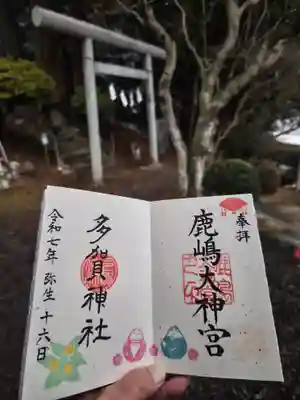 奉拝
鹿嶋大神宮
多賀神社
令和七年 弥生 十六日